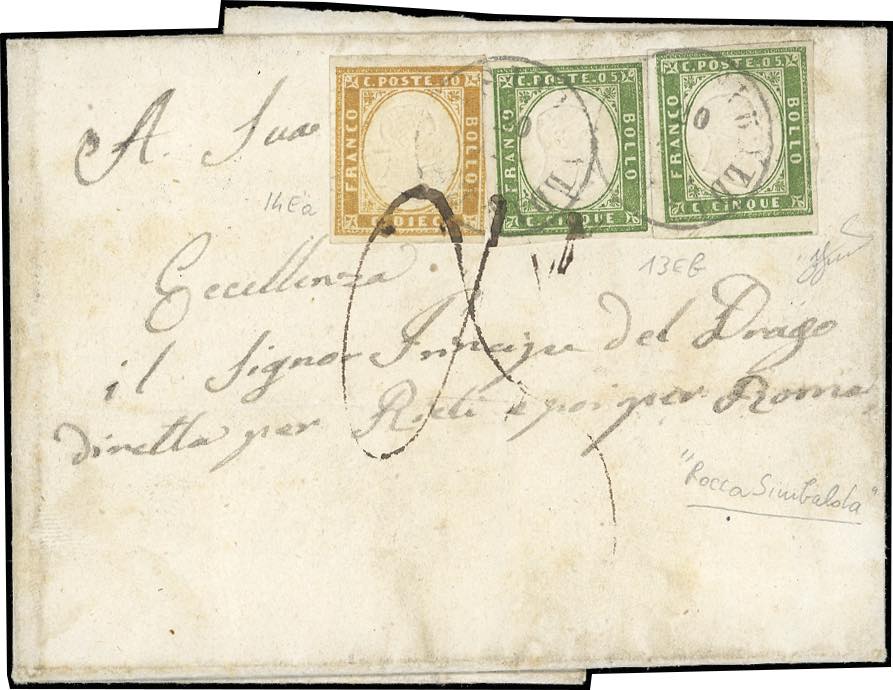 C. POSTE. 10
FRANCO
BOLLO
C. DIECI
C. POSTE. 05
FRANCO
BOLLO
C. CINQUE
C. POSTE. 05
FRANCO
BOLLO
C. CINQUE
A. Sua
14Ea
13Eb
Eccellenza
il Signor Principe del Drago
diretta per Rieti e poi per Roma
"Rocca Sinibalda"